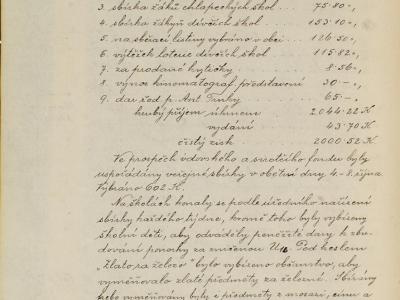 3. sbírka žáků chlapeckých škol . . . 75·80 „
4. sbírka žákyň dívčích škol . . . . 153·10 „
5. na sběrací listiny vybráno v obci . . . 126·50 „
6. výtěžek loterie dívčích škol . . . 115·82 „
7. za prodané kytičky . . . 8·56 „
8. výnos kinematograf. představení 30·– „
9. dar řed. p. Ant. Trnky . . . 65·– „
hrubý příjem úhrnem 2044·22 K
vydání 43·70 K
čistý zisk . 2000·52 K
Ve prospěch vdovského a sirotčího fondu byly
uspořádány veřejné sbírky v obětní dny 4.-8. října
Vybráno 602 K.
Na školách konaly se podle úředního nařízení
sbírky každého týdne, kromě toho byly vybízeny
školní děti, aby odváděly peněžité dary k zbu-
dování ponorky za zničenou U₁₂. Pod heslem
„Zlato za železo" bylo vybízeno občanstvo, aby
vyměňovalo zlaté předměty za železné. Sbírány
nebo vyměňovány byly i předměty z mosazi, cínu a